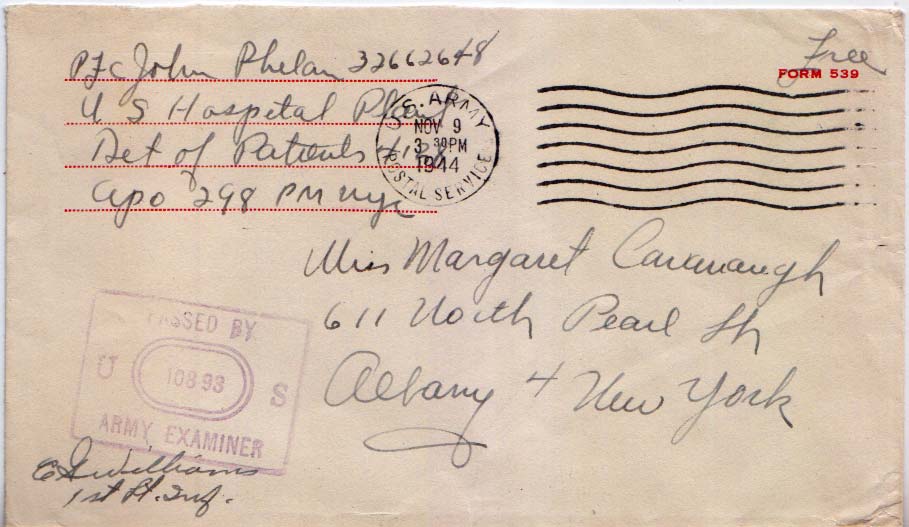 Pfc John Phelan 32662648
Free
FORM 539
U S Hospital Plant
Det of Patients 4188
Apo 298 PM NYC
U.S. ARMY
NOV 9
3 30PM
1944
POSTAL SERVICE
Miss Margaret Cavanaugh
611 North Pearl St
Albany 4 New York
PASSED BY
U 10893 S
ARMY EXAMINER
Williams
1st Lt. Inf.